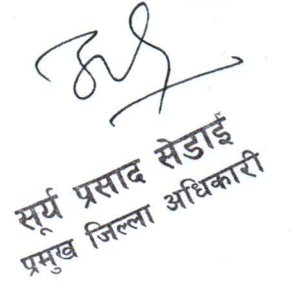 सूर्य प्रसाद सेडाई
प्रमुख जिल्ला अधिकारी